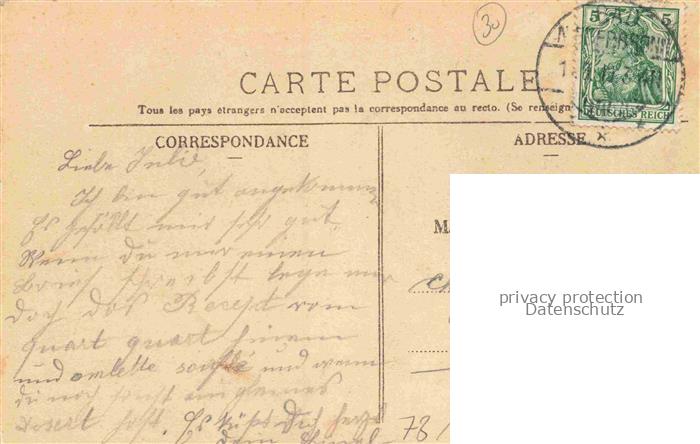 30
CARTE POSTALE
Tous les pays étrangers n'acceptent pas la correspondance au recto. (Se renseign
5 5
DEUTSCHES REICH
CORRESPONDANCE
ADRESSE
Liebe Julie,
Ich bin gut angekommen
Es gefällt mir sehr gut.
Wenn du mir einen
Brief schreibst lege mir
doch das Rezept vom
quart quart hinein
und omlette soufflé und wenn
du noch sonst ein
hast. Es küßt Dich
M
privacy protection
Datenschutz
78/